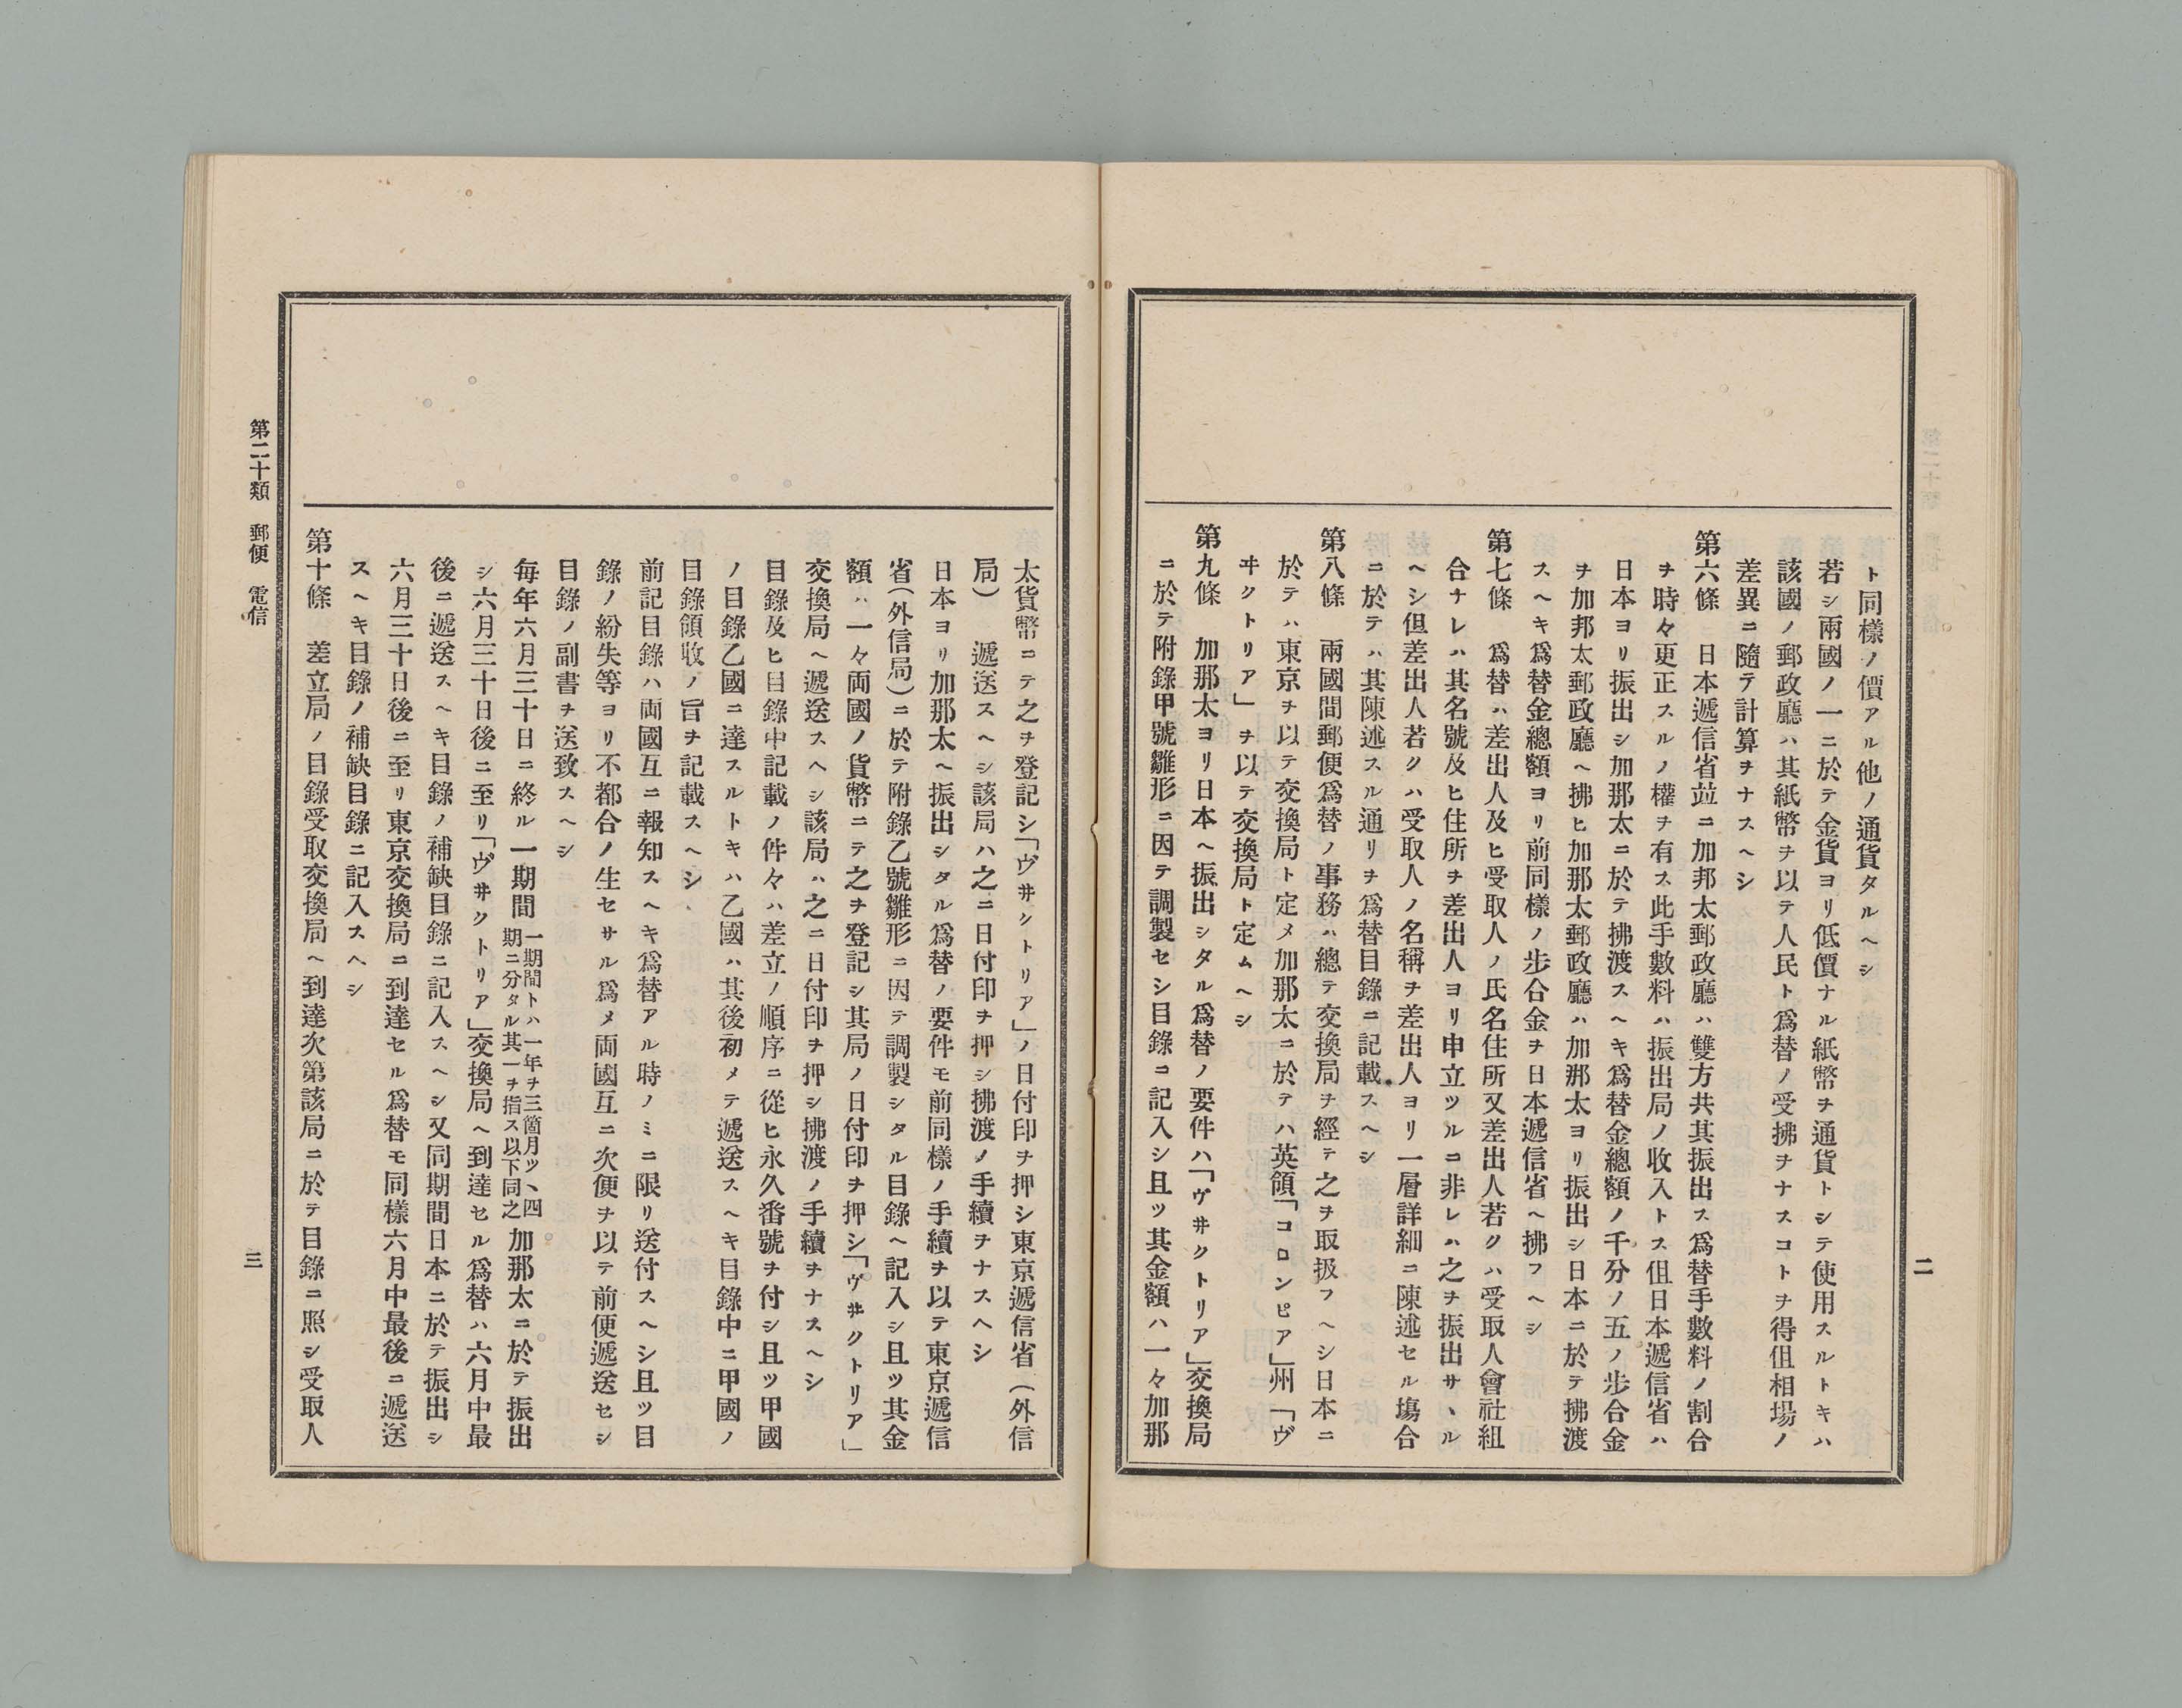 ト同樣ノ價アル他ノ通貨タルヘシ
若シ兩國ノ一ニ於テ金貨ヨリ低價ナル紙幣ヲ通貨トシテ使用スルトキハ
該國ノ郵政廳ハ其紙幣ヲ以テ人民ト爲替ノ受拂ヲナスコトヲ得伹相場ノ
差異ニ隨テ計算ヲナスヘシ
第六條　日本遞信省竝ニ加邦太郵政廳ハ雙方共其振出ス爲替手數料ノ割合
ヲ時々更正スルノ權ヲ有ス此手數料ハ振出局ノ收入トス伹日本遞信省ハ
日本ヨリ振出シ加那太ニ於テ拂渡スヘキ爲替金總額ノ千分ノ五ノ步合金
ヲ加邦太郵政廳ヘ拂ヒ加那太郵政廳ハ加那太ヨリ振出シ日本ニ於テ拂渡
スヘキ爲替金總額ヨリ前同樣ノ步合金ヲ日本遞信省ヘ拂フヘシ
第七條　爲替ハ差出人及ヒ受取人ノ氏名住所又差出人若クハ受取人會社組
合ナレハ其名號及ヒ住所ヲ差出人ヨリ申立ツルニ非レハ之ヲ振出サヽル
ヘシ但差出人若クハ受取人ノ名稱ヲ差出人ヨリ一層詳細ニ陳述セル塲合
ニ於テハ其陳述スル通リヲ爲替目錄ニ記載スヘシ
第八條　兩國間郵便爲替ノ事務ハ總テ交換局ヲ經テ之ヲ取扱フヘシ日本ニ
於テハ東京ヲ以テ交換局ト定メ加那太ニ於テハ英領「コロンピア」州「ヴ
ヰクトリア」ヲ以テ交換局ト定ムヘシ
第九條　加那太ヨリ日本ヘ振出シタル爲替ノ要件ハ「ヴヰクトリア」交換局
ニ於テ附錄甲號雛形ニ因テ調製セシ目錄ニ記入シ且ツ其金額ハ一々加那
二
太貨幣ニテ之ヲ登記シ「ヴヰクトリア」ノ日付印ヲ押シ東京遞信省（外信
局）　遞送スヘシ該局ハ之ニ日付印ヲ押シ拂渡ノ手續ヲナスヘシ
日本ヨリ加那太ヘ振出シタル爲替ノ要件モ前同樣ノ手續ヲ以テ東京遞信
省（外信局）ニ於テ附錄乙號雛形ニ因テ調製シタル目錄ヘ記入シ且ツ其金
額ハ一々両國ノ貨幣ニテ之ヲ登記シ其局ノ日付印ヲ押シ「ヴヰクトリア」
交換局ヘ遞送スヘシ該局ハ之ニ日付印ヲ押シ拂渡ノ手續ヲナスヘシ
目錄及ヒ目錄中記載ノ件々ハ差立ノ順序ニ從ヒ永久番號ヲ付シ且ツ甲國
ノ目錄乙國ニ達スルトキハ乙國ハ其後初メテ遞送スヘキ目錄中ニ甲國ノ
目錄領收ノ旨ヲ記載スヘシ
前記目錄ハ両國互ニ報知スヘキ爲替アル時ノミニ限リ送付スヘシ且ツ目
錄ノ紛失等ヨリ不都合ノ生セサル爲メ両國互ニ次便ヲ以テ前便遞送セシ
目錄ノ副書ヲ送致スヘシ
每年六月三十日ニ終ル一期間一期間トハ一年ヲ三箇月ツヽ四期ニ分タル其一ヲ指ス以下同之加那太ニ於テ振出
シ六月三十日後ニ至リ「ヴヰクトリア」交換局ヘ到達セル爲替ハ六月中最
後ニ遞送スヘキ目錄ノ補缺目錄ニ記入スヘシ又同期間日本ニ於テ振出シ
六月三十日後ニ至リ東京交換局ニ到達セル爲替モ同樣六月中最後ニ遞送
スヘキ目錄ノ補缺目錄ニ記入スヘシ
第十條　差立局ノ目錄受取交換局ヘ到達次第該局ニ於テ目錄ニ照シ受取人
第二十類　郵便　電信
三